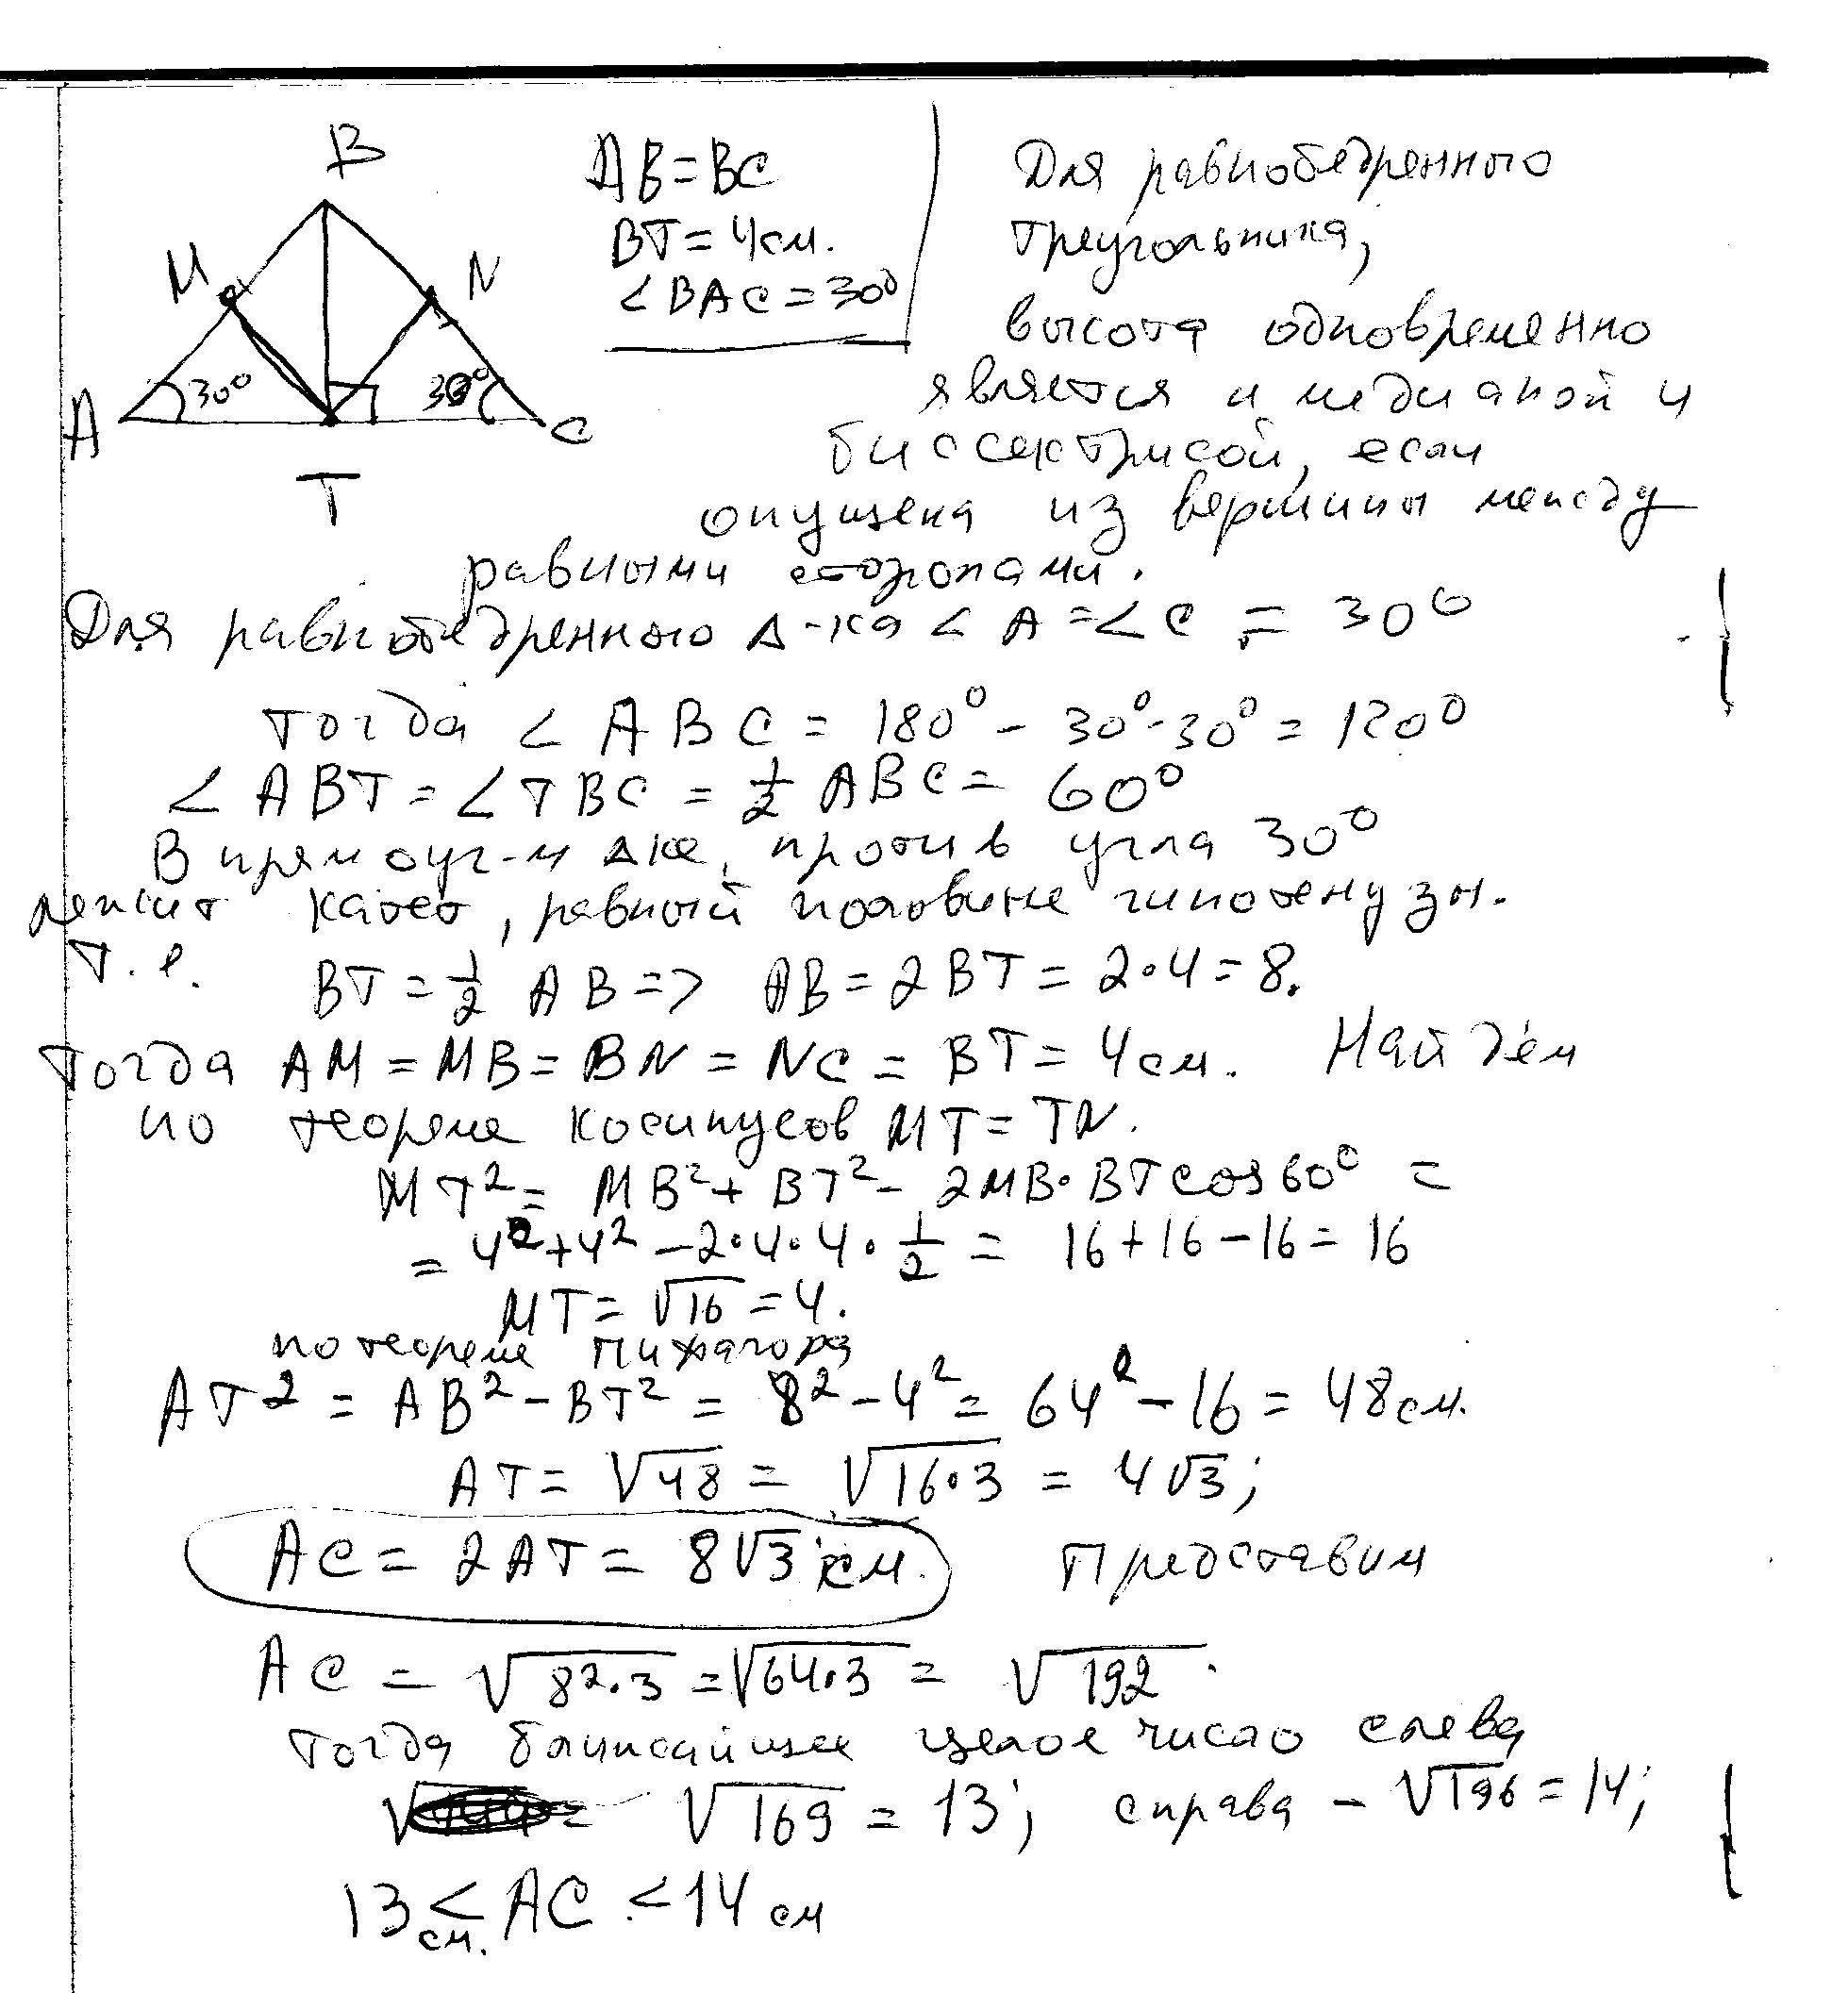 B
M
N
A
30°
30°
C
T
AB=BC
BT=4см.
<BAC=30°
Для равнобедренного
треугольника,
высота одновременно
является и медианой и
биссектрисой, если
опущена из вершины между
равными сторонами.
Для равнобедренного Δ-ка <A=<C=30°
тогда <ABC=180°-30°-30°=120°
<ABT=<TBC=1/2 ABC=60°
В прямоуг-м Δке, против угла 30°
лежит катет, равный половине гипотенузы.
т.е. BT=1/2 AB=> AB=2BT=2·4=8.
тогда AM=MB=BN=NC=BT=4см. Найдём
по теореме косинусов MT=TN.
MT²=MB²+BT²-2MB·BTcos60°=
=4²+4²-2·4·4·1/2=16+16-16=16
MT=√16=4.
по теореме Пифагора
AT²=AB²-BT²=8²-4²=64²-16=48см.
AT=√48=√16·3=4√3;
AC=2AT=8√3 см. Представим
AC=√8²·3=√64·3=√192.
тогда ближайшее целое число слева
√169=13; справа-√196=14;
13см.<AC<14см